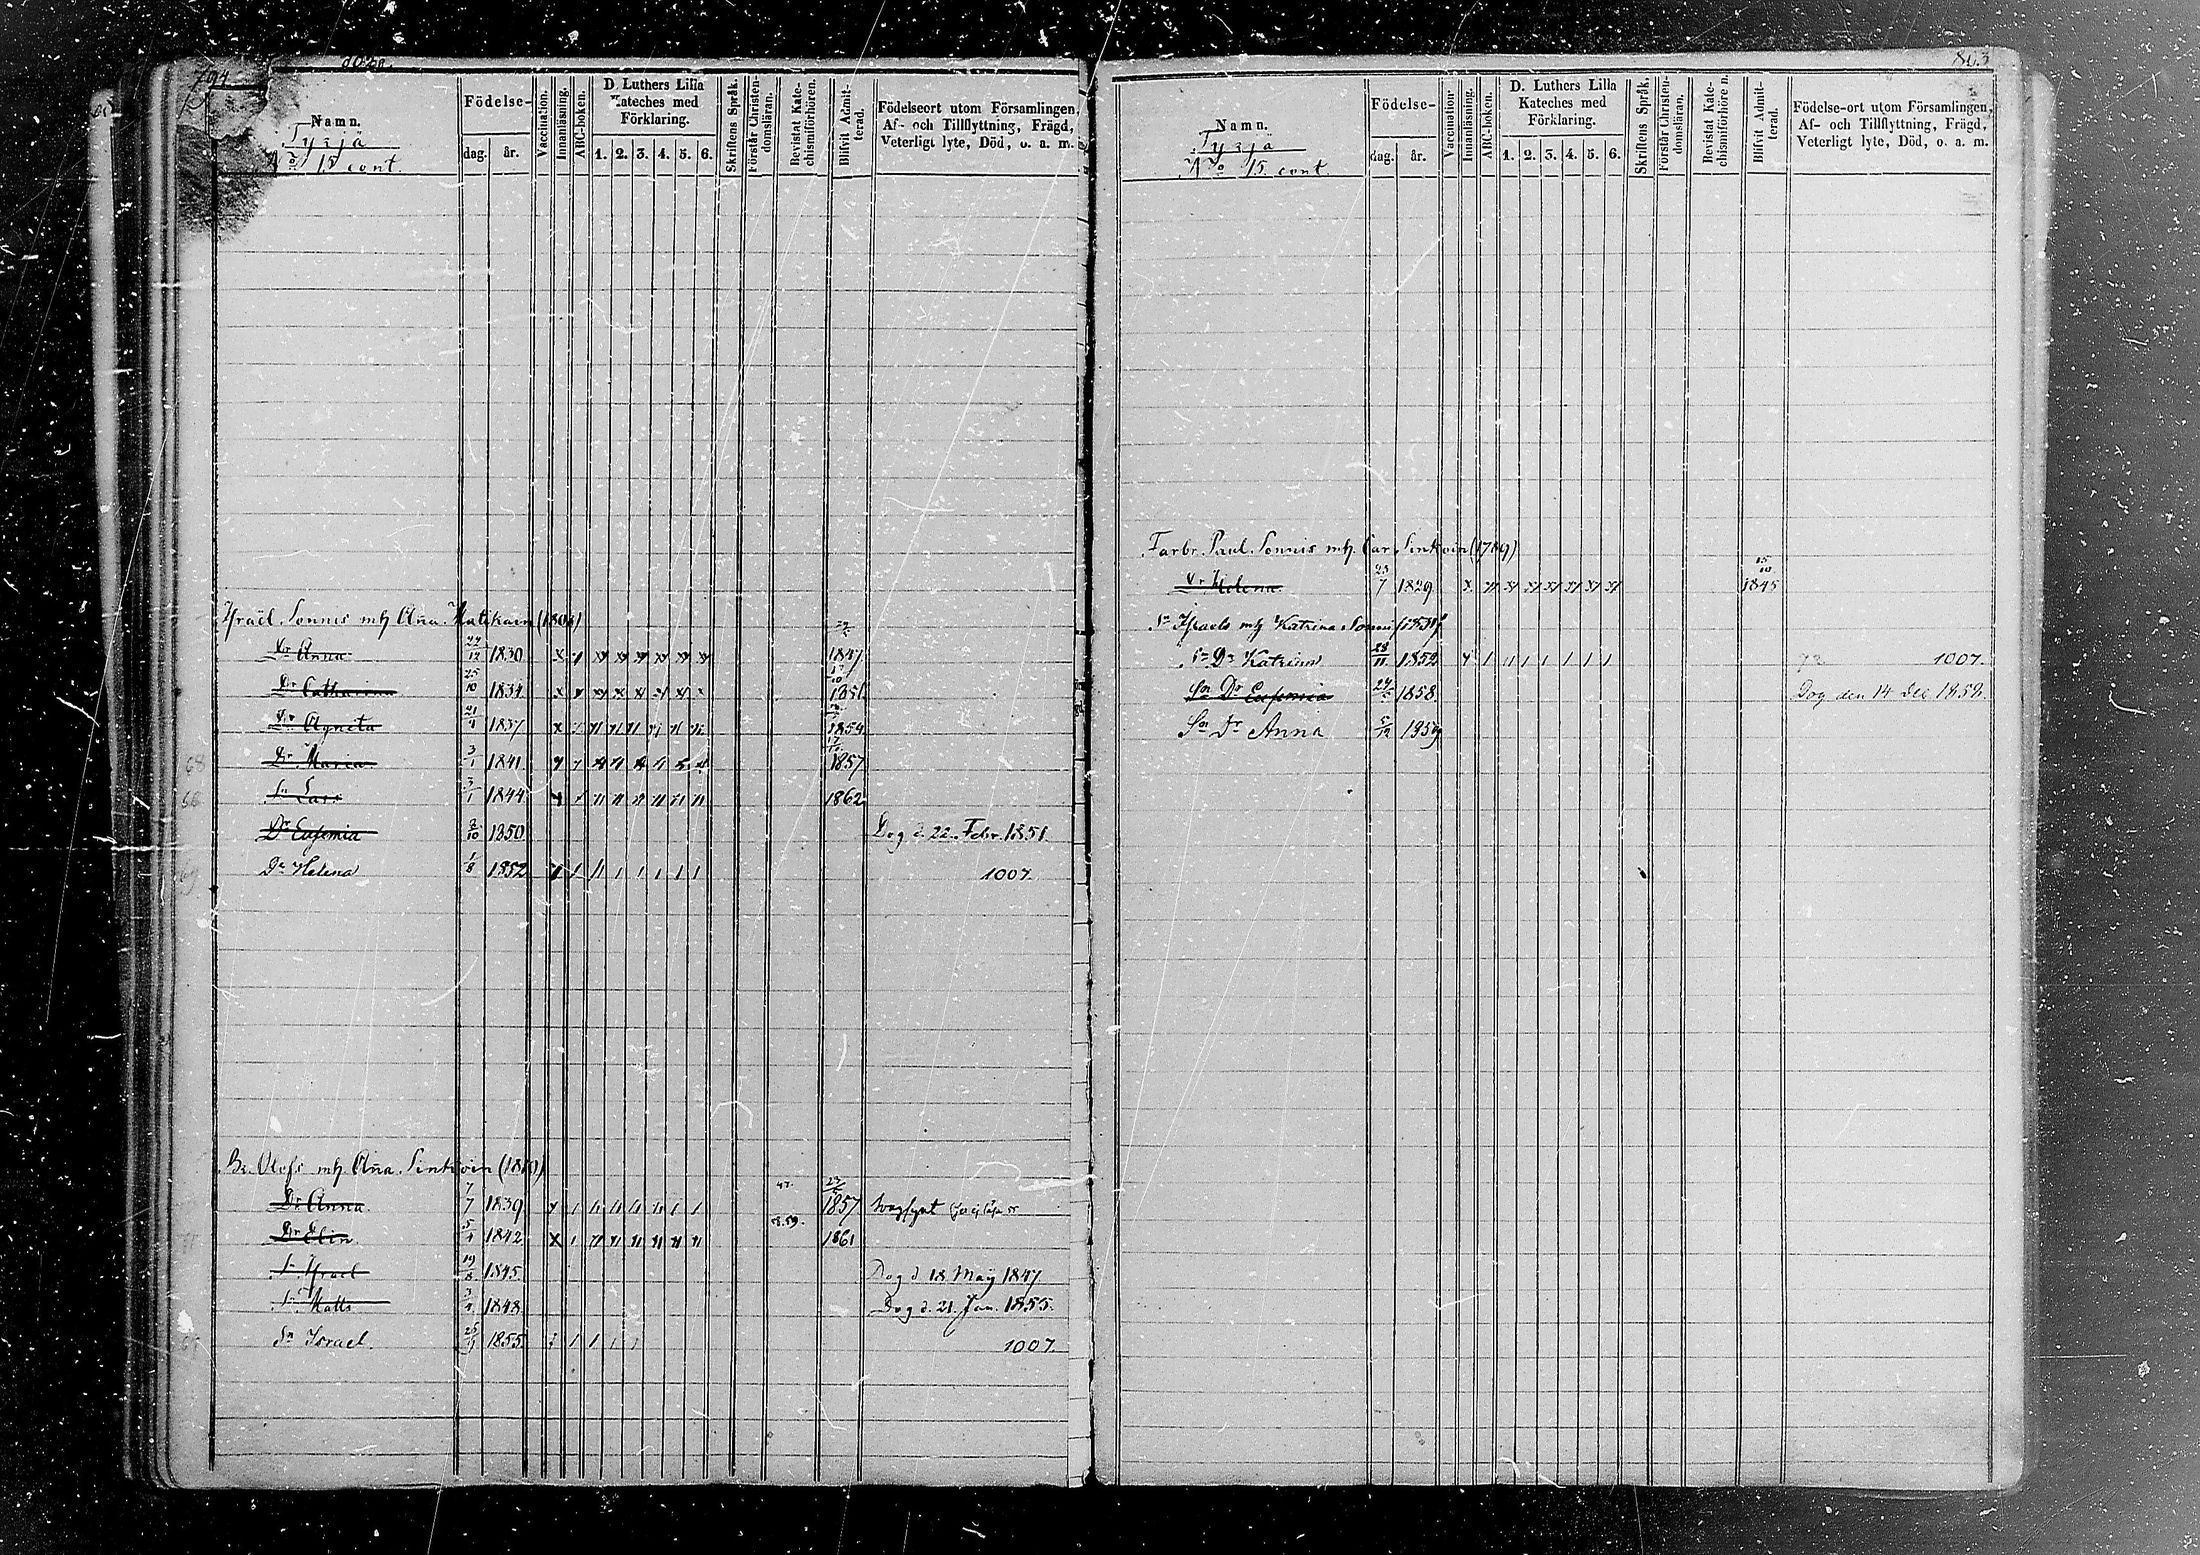 794
Namn.
Tyrjä
No 15 cont.
Födelse-
dag. år.
Vaccination.
Innanläsning.
ABC-boken.
D. Luthers Lilla
Kateches med
Förklaring.
1. 2. 3. 4. 5. 6.
Skriftens Språk.
Förstår Christen-
domsläran.
Bevistat Kate-
chismiförhören.
Blifvit Admit-
terad.
Födelseort utom Församlingen,
Af- och Tillflyttning, Frägd,
Veterligt lyte, Död, o. a. m.
Israël Sonnis mh Aña Matikain (1806)
Dr Anna 12 1830 1847
Dr Catharina 25/10 1834 1851
Dr Agneta 21/4 1837 1854
68 Dr Maria 3/1 1841 17 1857
Sn Lars 3/1 1844 1862
Dr Eufemia 2/10 1850 Dog d. 22. Febr. 1851
Dr Helena 1/8 1852 1007.
Br. Olofs mh Aña Sinkoin (1810)
Dr Anna 7/7 1839 47. 23 1857 svagsynt
Dr Elin 5/4 1842 58.59. 1861
Sn Israel 19/8 1845 Dog d 18 Maÿ 1847
Sn Matts 3/4 1848 Dog d. 21. Jan. 1855.
Sn Israel. 25/9 1855 1007.
803
Namn.
Tyrjä
No 15 cont.
Födelse-
dag. år.
Vaccination
Innanläsning.
ABC-boken.
D. Luthers Lilla
Kateches med
Förklaring.
1. 2. 3. 4. 5. 6.
Skriftens Språk.
Förstår Christen-
domsläran.
Bevistat Kate-
chismiförhören.
Blifvit Admit-
terad.
Födelse-ort utom Församlingen,
Af- och Tillflyttning, Frägd,
Veterligt lyte, Död, o. a. m.
Farbr. Paul Sonnis mh. Car. Sinkoin (1789)
Dr Helena 23/7 1829 15/10 1845
Sn Israels mh Katrina Sonni
Sn Dr Katrina 28/11 1852 1007.
Sn Dr Eufemia 1858 Dog den 14 Dec 1858.
Sn Dr Anna 5/12 1859